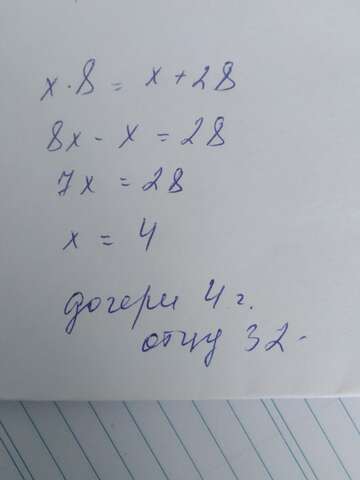 x · 8 = x + 28
8x - x = 28
7x = 28
x = 4
дочери 4 г.
отцу 32.